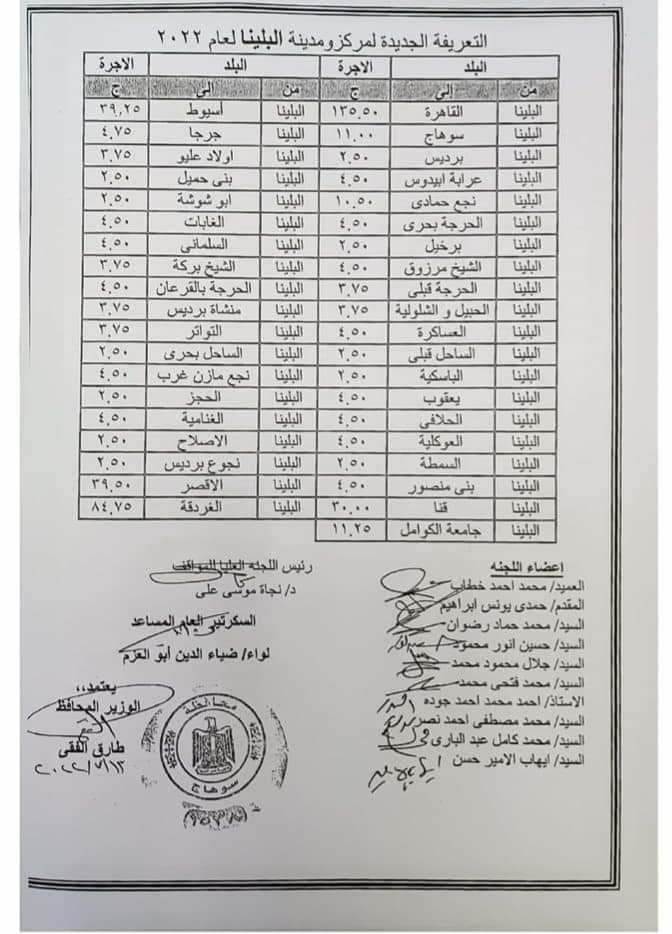 التعريفة الجديدة لمركز ومدينة البلينا لعام ٢٠٢٢
البلد الاجرة البلد الاجرة
من إلى ج من إلى ج
البلينا القاهرة ١٣٥,٥٠ البلينا أسيوط ٣٩,٢٥
البلينا سوهاج ١١,٠٠ البلينا جرجا ٤,٧٥
البلينا برديس ٢,٥٠ البلينا اولاد عليو ٣,٧٥
البلينا عرابة ابيدوس ٤,٥٠ البلينا بنى حميل ٢,٥٠
البلينا نجع حمادى ١٠,٥٠ البلينا ابو شوشة ٢,٥٠
البلينا الحرجة بحرى ٤,٥٠ البلينا الغابات ٤,٥٠
البلينا برخيل ٢,٥٠ البلينا السلمانى ٤,٥٠
البلينا الشيخ مرزوق ٤,٥٠ البلينا الشيخ بركة ٣,٧٥
البلينا الحرجة قبلى ٣,٧٥ البلينا الحرجة بالقرعان ٤,٥٠
البلينا الحبيل و الشلولية ٣,٧٥ البلينا منشاة برديس ٣,٧٥
البلينا العساكرة ٤,٥٠ البلينا التواتر ٣,٧٥
البلينا الساحل قبلى ٢,٥٠ البلينا الساحل بحرى ٢,٥٠
البلينا الباسكية ٢,٥٠ البلينا نجع مازن غرب ٤,٥٠
البلينا يعقوب ٤,٥٠ البلينا الحجز ٢,٥٠
البلينا الحلافى ٤,٥٠ البلينا الغنامية ٤,٥٠
البلينا العوكلية ٤,٥٠ البلينا الاصلاح ٢,٥٠
البلينا السمطة ٢,٥٠ البلينا نجوع برديس ٢,٥٠
البلينا بنى منصور ٤,٥٠ البلينا الاقصر ٣٩,٥٠
البلينا قنا ٣٠,٠٠ البلينا الغردقة ٨٤,٧٥
البلينا جامعة الكوامل ١١,٢٥
اعضاء اللجنه
العميد/ محمد احمد خطاب
المقدم/ حمدى يونس ابراهيم
السيد/ محمد حماد رضوان
السيد/ حسين انور محمود
السيد/ جلال محمود محمد
السيد/ محمد فتحى محمد
الاستاذ/ احمد محمد احمد جوده
السيد/ محمد مصطفى احمد نصر
السيد/ محمد كامل عبد البارى
السيد/ ايهاب الامير حسن
رئيس اللجنه العليا للمواقف
د/ نجاة موسى على
السكرتير العام المساعد
لواء/ ضياء الدين أبو العزم
يعتمد،،
الوزير المحافظ
طارق الفقى
محافظة
سوهاج